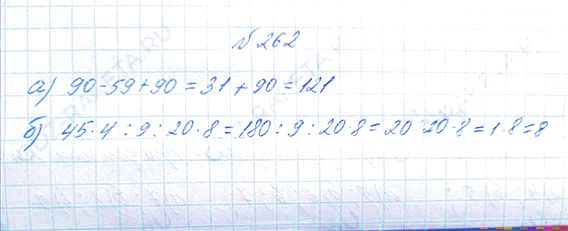 № 262
а) 90-59+90=31+90=121
б) 45·4:9:20·8=180:9:20·8=20:20·8=1·8=8